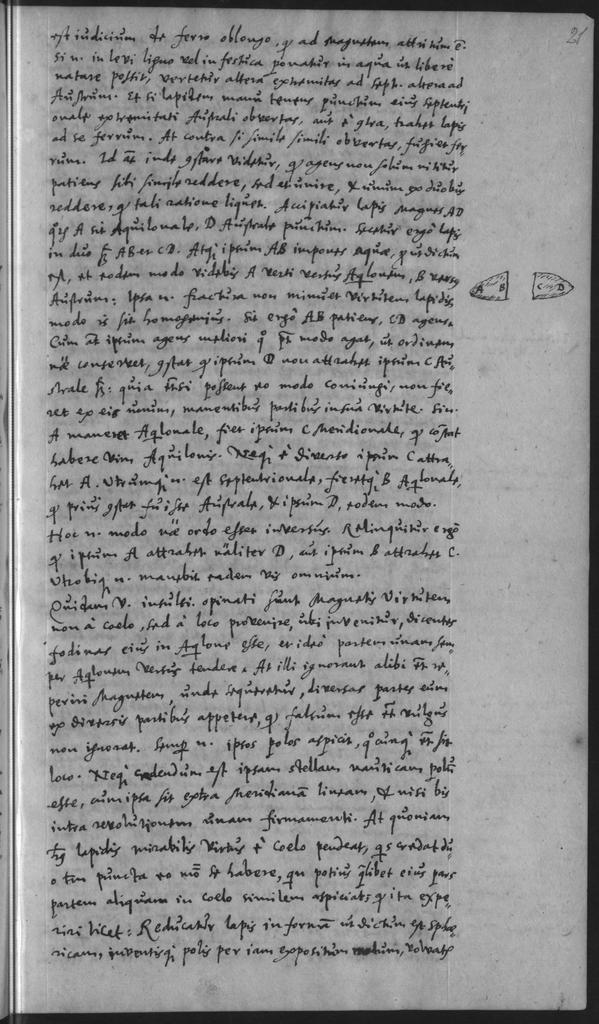 21
est iudicium de ferro oblongo, qd ad Magnetem attritum ē.
Si n. in levi ligno vel in festuca ponatur in aqua ut liberè
natare possit, vertetur altera extremitas ad Sept. altera ad
Austrum. Et si lapidem manu tenens punctum eius septentri
onale extremitati Australi obvertas, aut è gtra, trahet lapis
ad se ferrum. At contra si simile simili obvertas, fugiet fer
rum. Id at inde gstare videtur, qd agens non solum nititur
patiens sibi simile reddere, sed et unire, & unum ex duobus
reddere, qd tali ratione liquet. Accipiatur lapis Magnes AD
A sit Aquilonale, D Australe punctum. Secetur ergò lapis
in duo AB et CD. Atqj ipsum AB impones aquæ, ut dictum
est, et eodem modo videbis A verti versus Aqlonem, B versus
Austrum: Ipsa n. fractura non minuet virtutem lapidis
modo is sit homogenius. Sit ergò AB patiens, CD agens.
Cum at ipsum agens meliori modo agat, ut ordinem
næ conservet, gstat qd ipsum D non attrahet ipsum C Au
strale: quia etsi possent eo modo coniungi, non fie
ret ex eis unum, manentibus partibus in sua virtute. Sin
A maneret Aqlonale, fiet ipsum C Meridionale, qd constat
habere vim Aquilonis. Neqj è diverso ipsum C attra
het A. Utrumqj n. est septentrionale, fieretqj B Aqlonale,
qd prius gstat fuisse Australe, & ipsum D, eodem modo.
Hoc n. modo næ ordo esset inversus. Relinquitur ergò
qd ipsum A attrahet næliter D, aut ipsum B attrahet C.
Utrobiq n. manebit eadem vis omnium.
Quidam v. insulsi opinati sunt Magnetis Virtutem
non à coelo, sed à loco provenire, ubi invenitur, dicentes
fodinas eius in Aqlone esse, et ideò partem unam sem
per Aqlonem versus tendere. At illi ignorant alibi et re
periri Magnetem, unde sequeretur, diversas partes eum
ex diversis partibus appetere, qd falsum esse et vulgus
non ignorat. Semp n. ipsos polos aspicit, qocunqj et sit
loco. Neqj credendum est ipsam stellam nauticam polū
esse, cum ipsa sit extra Meridianā lineam, & nisi bis
intra revolutionem unam firmamenti. At quoniam
lapidis mirabilis virtus è coelo pendeat, qis credat du
o tm puncta eo mō se habere, qn potius qlibet eius pars
partem aliquam in coelo similem aspiciat, qd ita expe
riri licet: Reducatur lapis in formā ut dictum est sphæ
ricam, inventisqj polis per iam expositum modum, volvatr
A B
C D